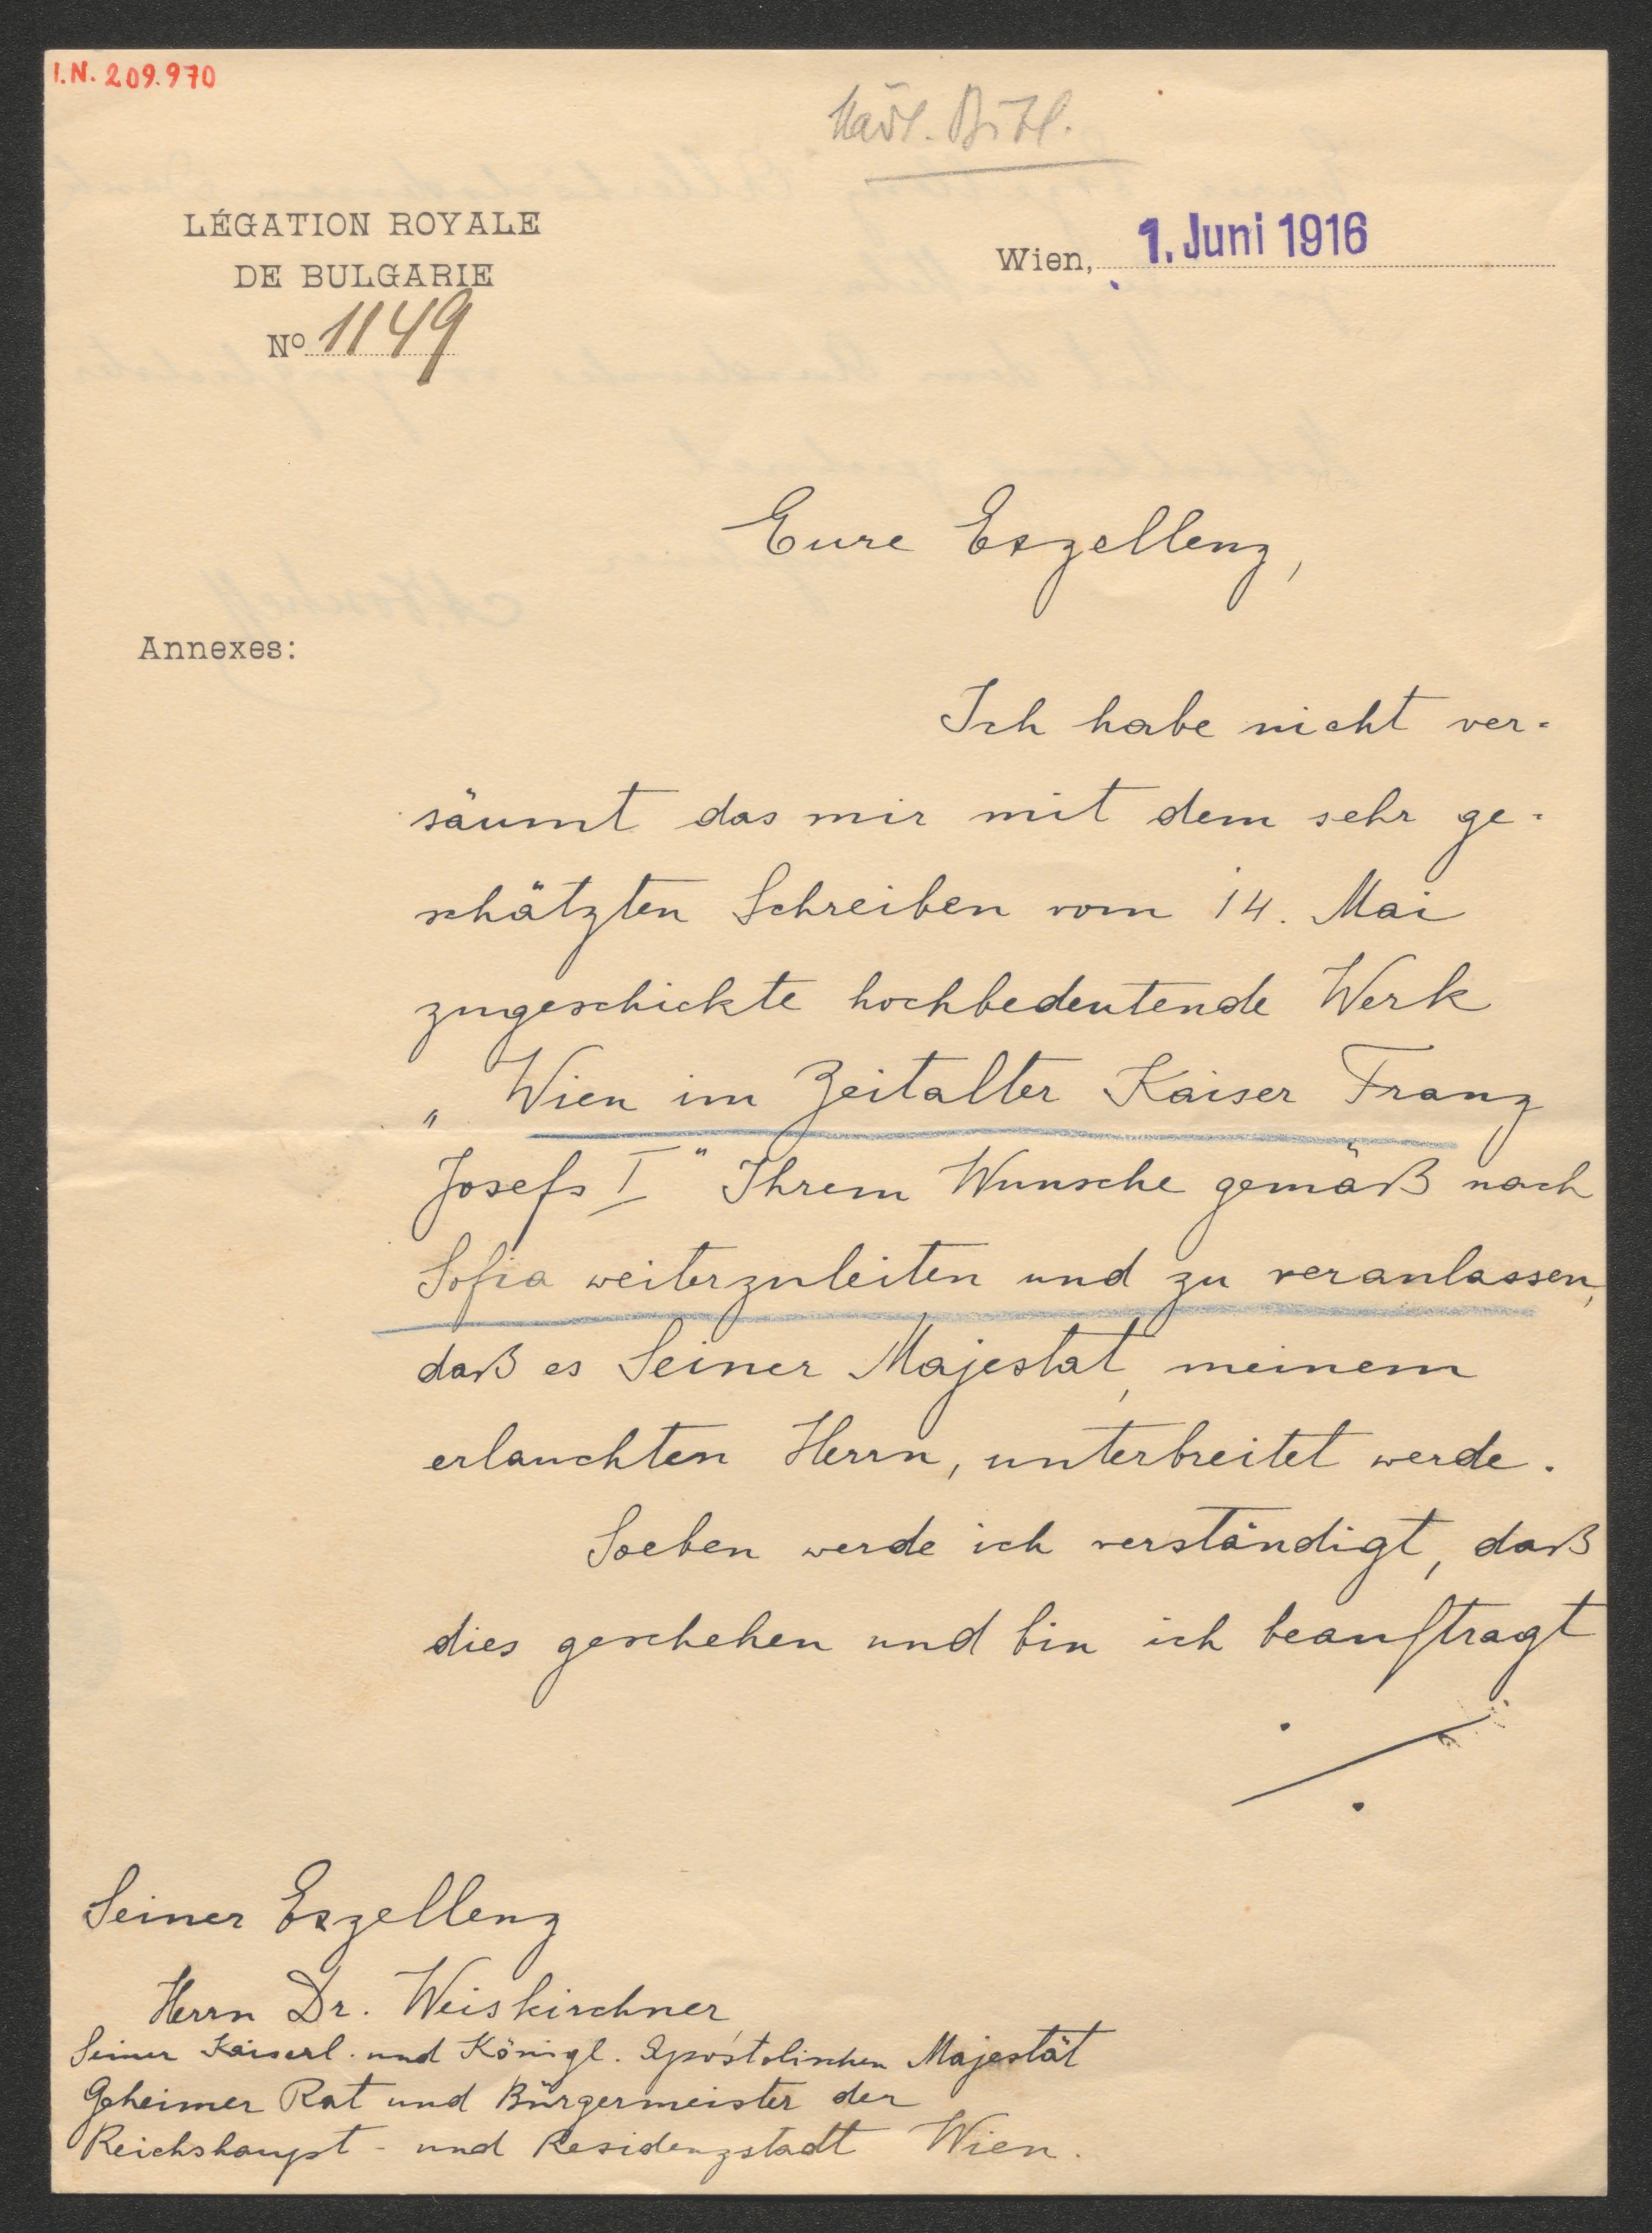 I.N. 209.970
Städt. Bibl.
LÉGATION ROYALE
DE BULGARIE
Nº 1149
Wien, 1. Juni 1916
Eure Exzellenz,
Annexes:
Ich habe nicht ver-
säumt das mir mit dem sehr ge-
schätzten Schreiben vom 14. Mai
zugeschickte hochbedeutende Werk
„Wien im Zeitalter Kaiser Franz
Josefs I" Ihrem Wunsche gemäß nach
Sofia weiterzuleiten und zu veranlassen,
daß es Seiner Majestat, meinem
erlauchten Herrn, unterbreitet werde.
Soeben werde ich verständigt, daß
dies geschehen und bin ich beauftragt
./.
Seiner Exzellenz
Herrn Dr. Weiskirchner
Seiner Kaiserl. und Königl. Apostolischen Majestät
Geheimer Rat und Bürgermeister der
Reichshaupt- und Residenzstadt Wien.